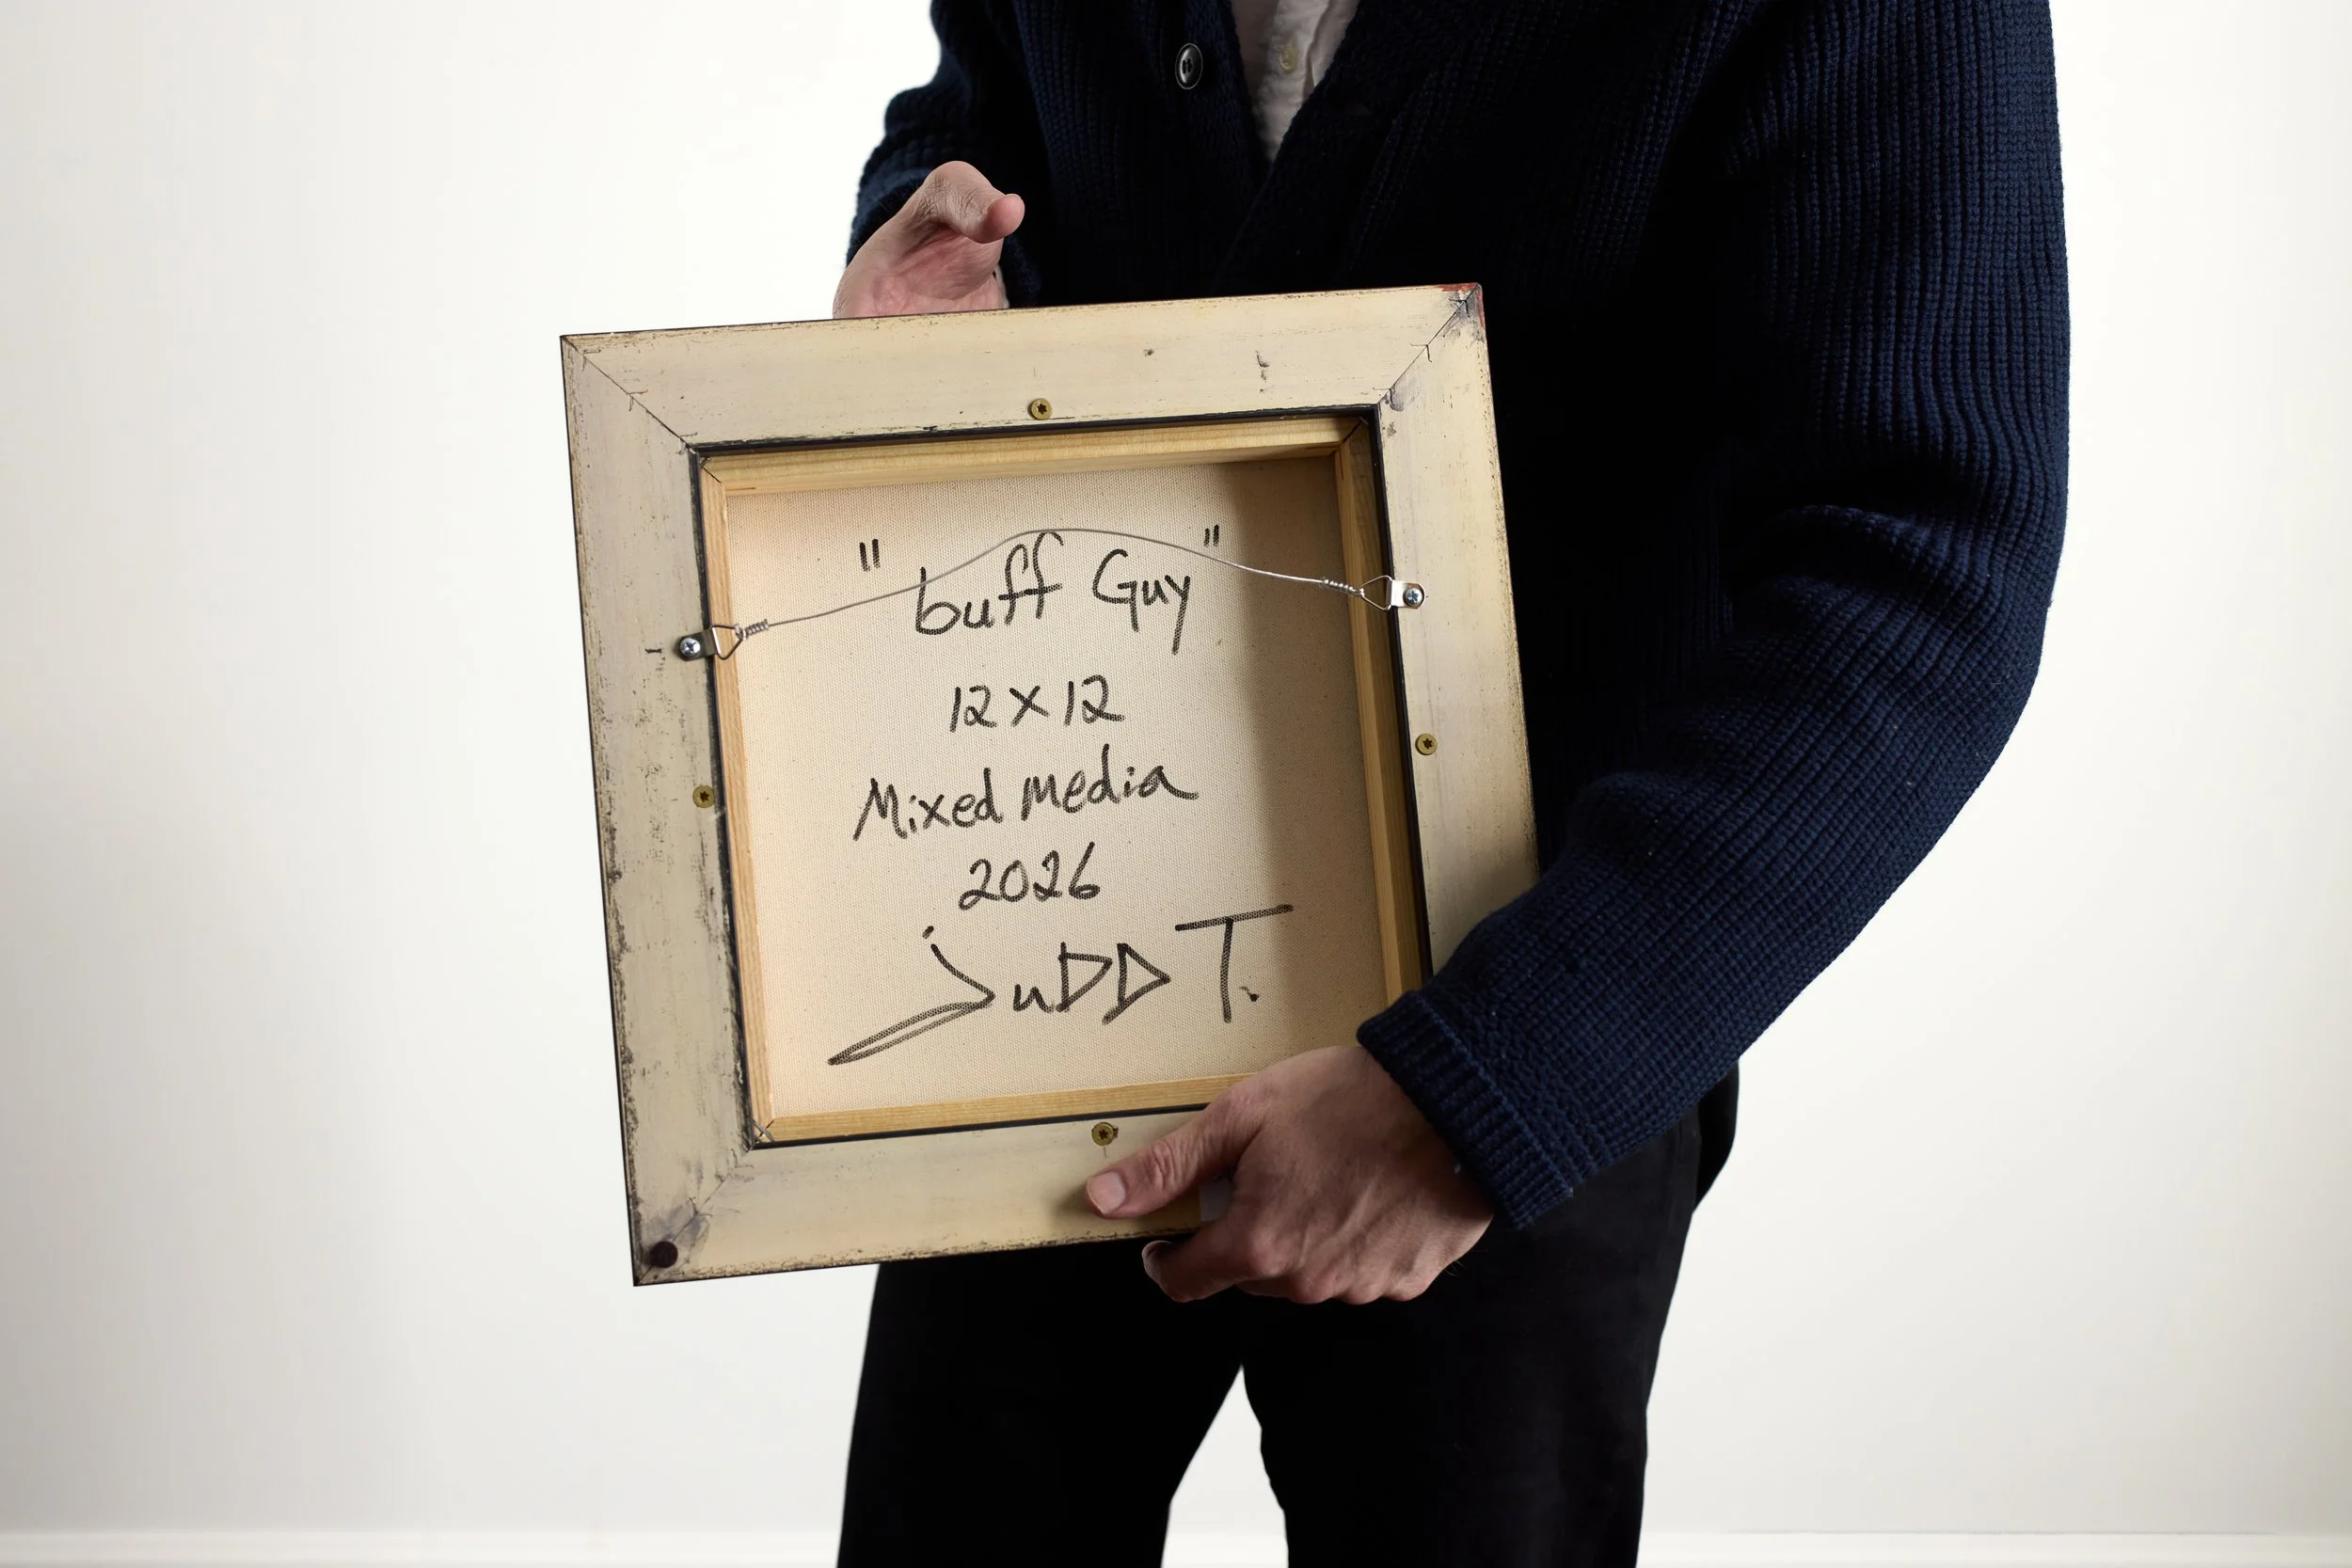 "buff Guy"
12 x 12
Mixed media
2026
juDD T.